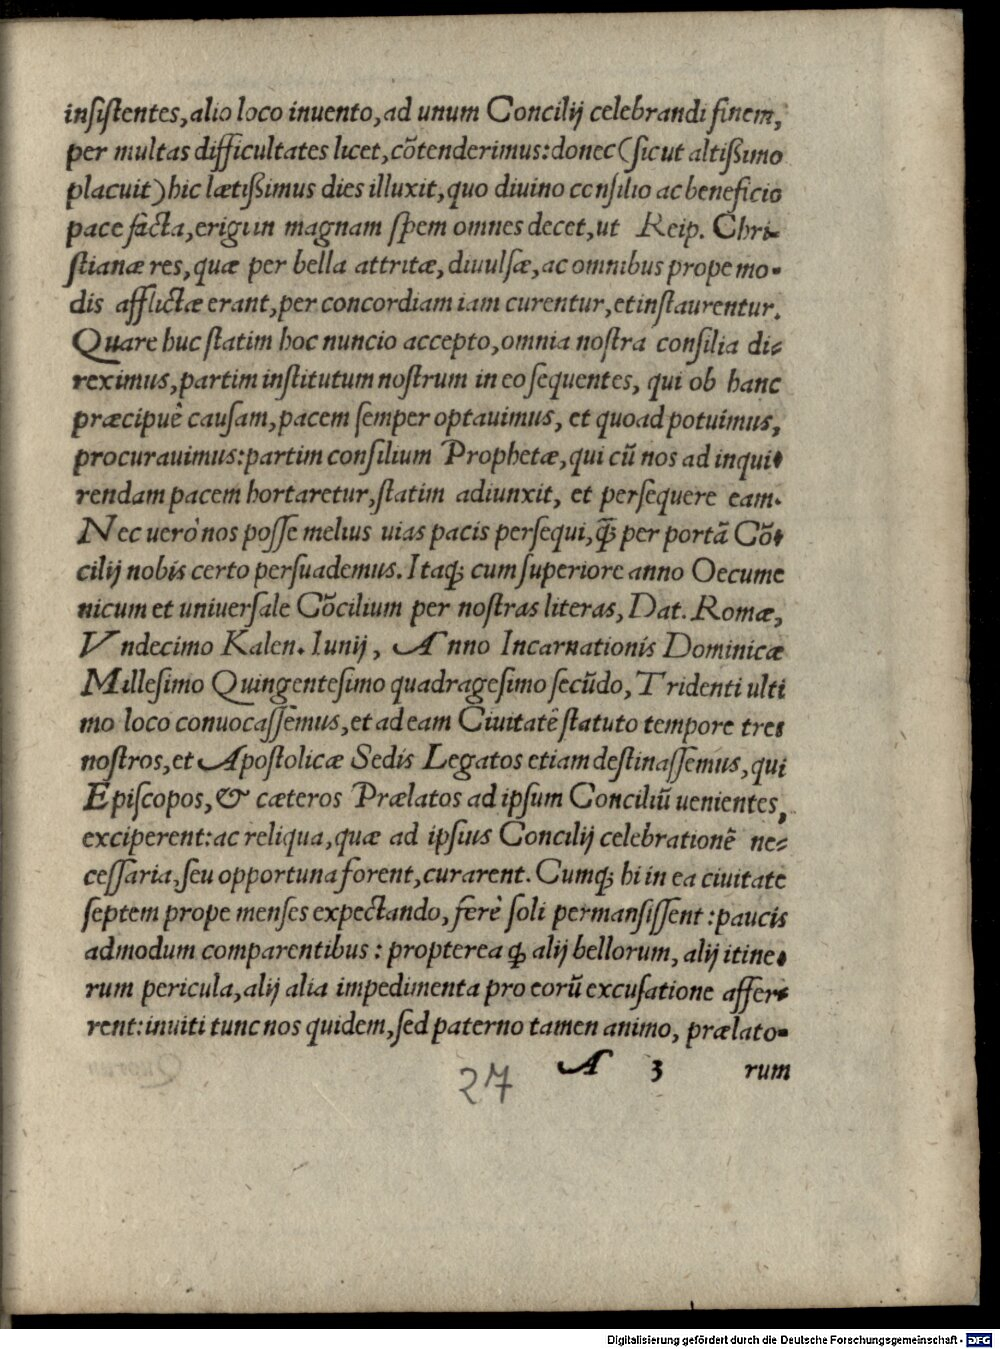 insistentes, alio loco inuento, ad unum Concilij celebrandi finem,
per multas difficultates licet, cōtenderimus: donec (sicut altißimo
placuit) hic lætißimus dies illuxit, quo diuino consilio ac beneficio
pace facta, erigi in magnam spem omnes decet, ut Reip. Chri-
stianæ res, quæ per bella attritæ, diuulsæ, ac omnibus prope mo-
dis afflictæ erant, per concordiam iam curentur, et instaurentur.
Quare huc statim hoc nuncio accepto, omnia nostra consilia di-
reximus, partim institutum nostrum in eo sequentes, qui ob hanc
præcipuè causam, pacem semper optauimus, et quoad potuimus,
procurauimus: partim consilium Prophetæ, qui cū nos ad inqui-
rendam pacem hortaretur, statim adiunxit, et persequere eam.
Nec uerò nos posse melius uias pacis persequi, q̃ per portā Cō-
cilij nobis certo persuademus. Itaq; cum superiore anno Oecume
nicum et uniuersale Cōcilium per nostras literas, Dat. Romæ,
Vndecimo Kalen. Iunij, Anno Incarnationis Dominicæ
Millesimo Quingentesimo quadragesimo secūdo, Tridenti ulti
mo loco conuocassemus, et ad eam Ciuitatē statuto tempore tres
nostros, et Apostolicæ Sedis Legatos etiam destinassemus, qui
Episcopos, & cæteros Prælatos ad ipsum Conciliū uenientes,
exciperent: ac reliqua, quæ ad ipsius Concilij celebrationē ne-
cessaria, seu opportuna forent, curarent. Cumq; hi in ea ciuitate
septem prope menses expectando, ferè soli permansissent: paucis
admodum comparentibus: propterea ꝙ alij bellorum, alij itine-
rum pericula, alij alia impedimenta pro eorū excusatione affer-
rent: inuiti tunc nos quidem, sed paterno tamen animo, prælato-
A 3 rum
27
Digitalisierung gefördert durch die Deutsche Forschungsgemeinschaft - DFG